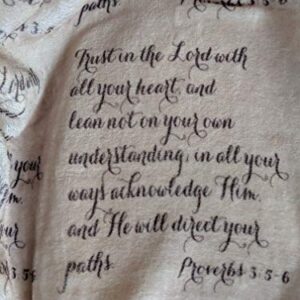 paths.
Trust in the Lord with
all your heart, and
lean not on your own
understanding, in all your
ways acknowledge Him,
and He will direct your
paths. Proverbs 3:5-6
your